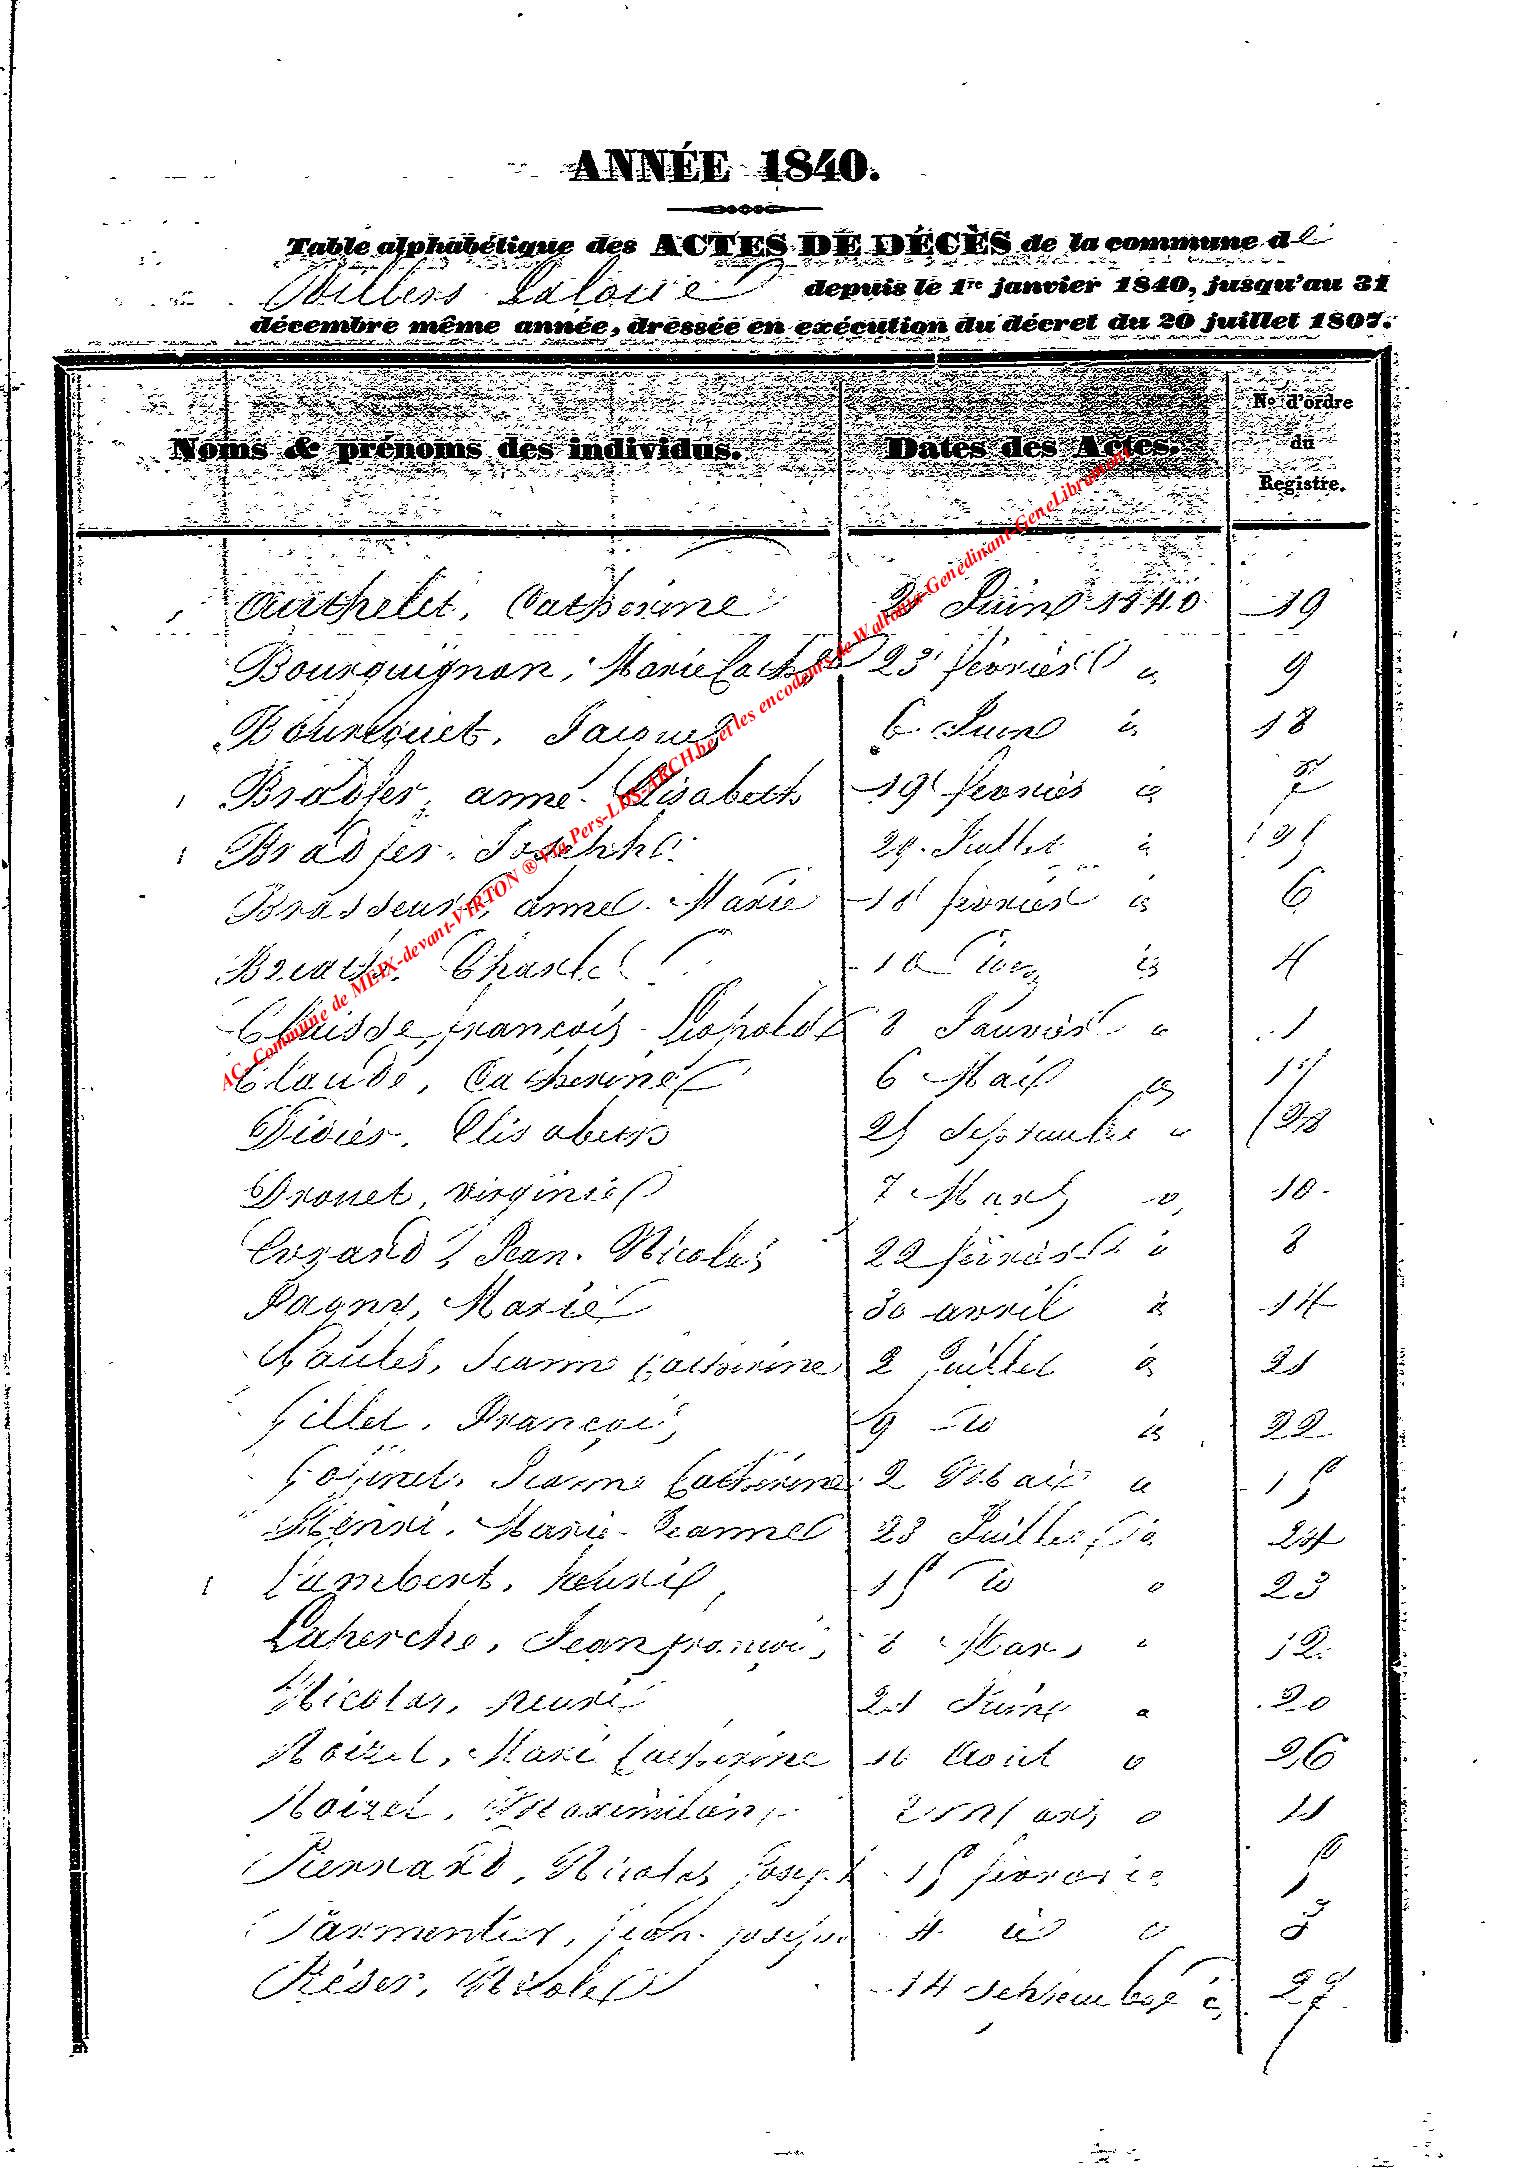 ANNÉE 1840.
Table alphabétique des ACTES DE DÉCÈS de la commune de
Villers Laloue depuis le 1re janvier 1840, jusqu'au 31
décembre même année, dressée en exécution du décret du 20 juillet 1807.
Noms & prénoms des individus. Dates des Actes. No d'ordre du Registre.
AC- Commune de MEIX-devant-VIRTON ® Via Pers-LDS-ARCH.be et les encodeurs de Wallonia-Genedinant-GeneLibramont
Authelet, Catherine 2 Juin 1840 19
Bourguignon, Marie Cath 23 février id 9
Bourcquet, Jacques 6 Juin id 18
Bradfer, anne Elisabeth 19 février id 7
Bradfer, Josephe 29 Juillet id 25
Brasseur, anne Marie 18 février id 6
Charle 10 id 4
Claisse, françois Léopold 8 Janvier id 1
Claude, Catherine 6 Mai id 17
Didier, Elisabeth 25 Septembre id 28
Drouet, virginie 7 Mars id 10
Evrard, Jean Nicolas 22 février id 8
Fagny, Marie 30 avril id 14
Jeanne Catherine 2 Juillet id 21
Gillet, François 9 id id 22
Jeanne Catherine 2 Mai id 15
Henri, Marie Jeanne 23 Juillet id 24
Lambert, henri 15 id id 23
Laherche, Jean françois 8 Mars id 12
Nicolas, henri 21 Juin id 20
Noizet, Marie Catherine 16 Août id 26
Noizet, Maximilien 8 Mars id 11
Pierrard, Nicolas Joseph 15 février id 5
Parmentier, Jean joseph 4 id id 3
Réser, Nicolas 14 septembre id 27